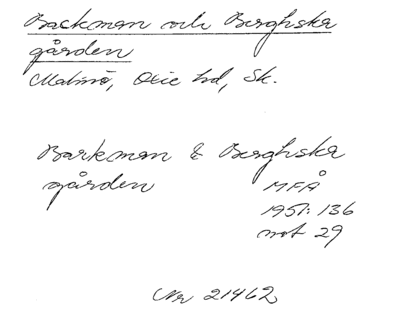 Backman och Berghska
gården
Malmö, Oxie hd, Sk.
Barkman & Berghska
gården
MFÅ
1951: 136
not 29
Nr 21462